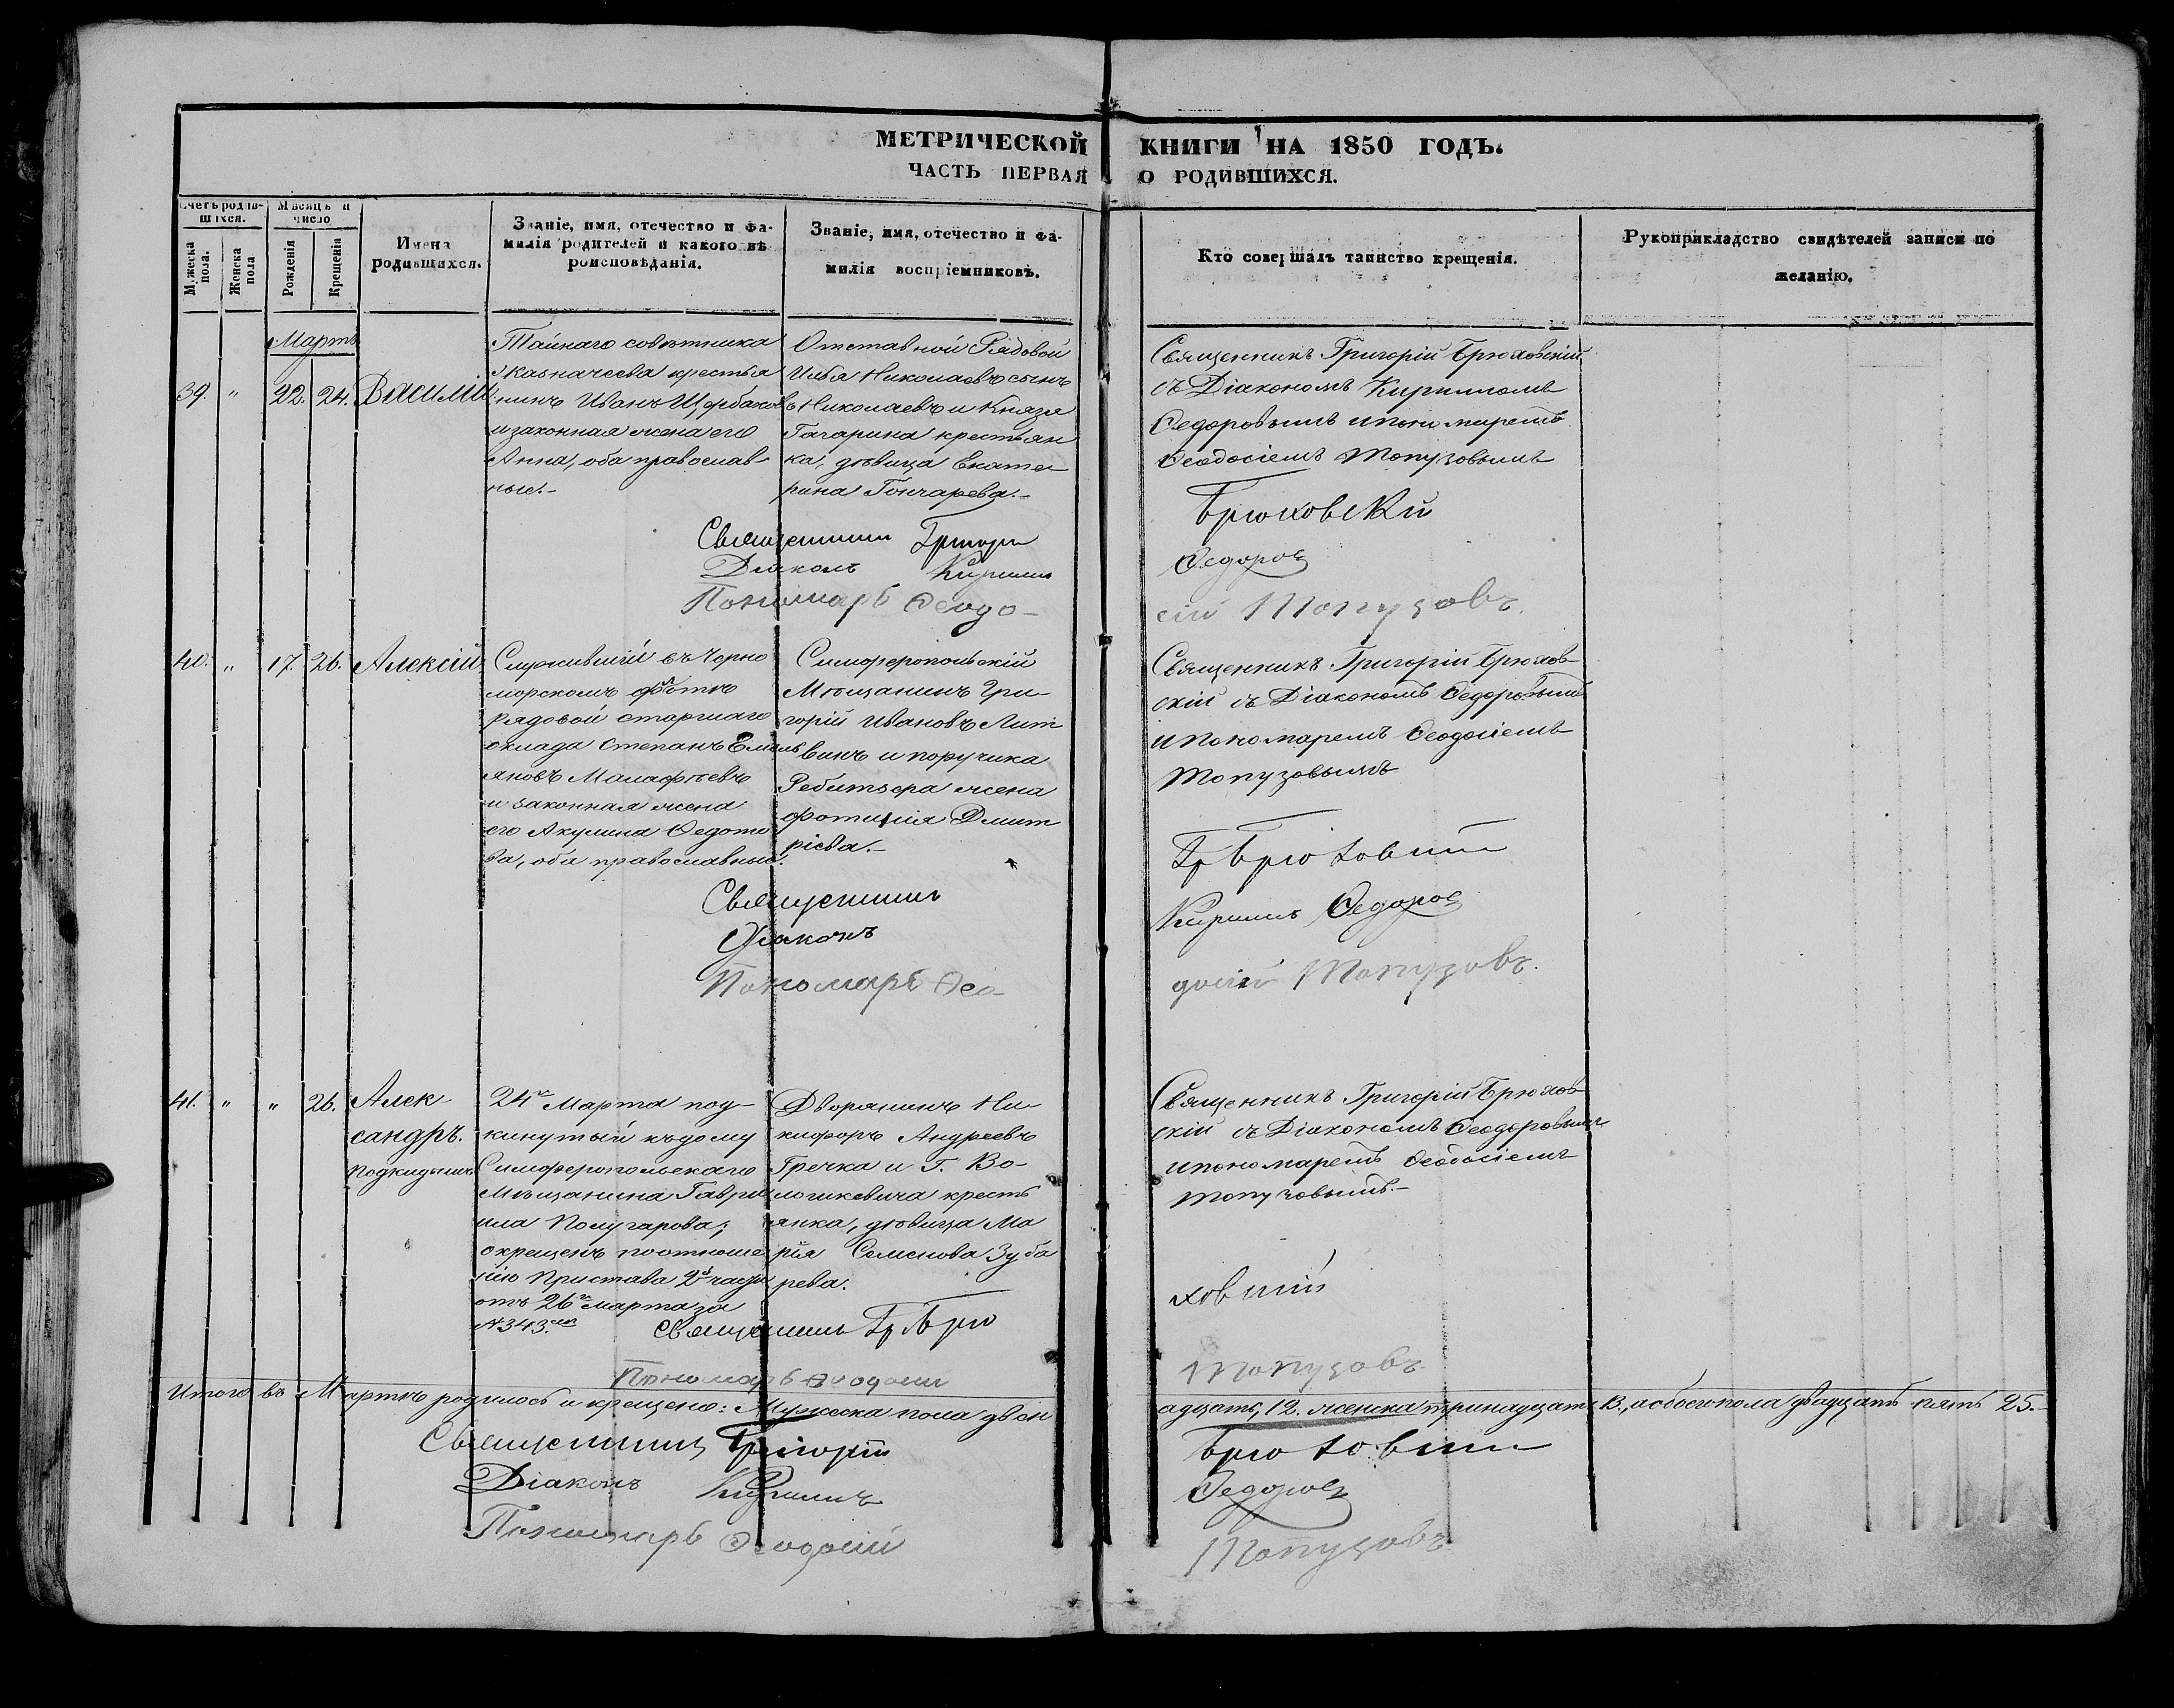 МЕТРИЧЕСКОЙ КНИГИ НА 1850 ГОДЪ.
ЧАСТЬ ПЕРВАЯ О РОДИВШИХСЯ.
Счетъ родившихся.
Мужеска пола.
Женска пола
Мѣсяцъ и число
Рожденія
Крещенія
Имена родившихся.
Званіе, имя, отечество и фа-
милія родителей и какого вѣ
роисповѣданія.
Званіе, имя, отечество и фа-
милія воспріемниковъ.
Кто совершалъ таинство крещенія.
Рукоприкладство свидѣтелей записи по
желанію.
Мартъ
39. " 22. 24. Василій
Тайнаго совѣтника
Казначеева крестья
нинъ Иванъ Щербаковъ
и законная жена его
Анна, оба православ
ные.-
Отставной Рядовой
Илья Николаевъ сынъ
Николаевъ и Князя
Гагарина крестьян
ка, дѣвица Екате-
рина Гончарева.-
Священникъ Григорій Брюховскій
съ Діакономъ Кирилломъ
Ѳедоровымъ и пономаремъ
Ѳеодосіемъ Топузовымъ
Священникъ Григорій Брюховскій
Діаконъ Кириллъ Ѳедоровъ
Пономарь Ѳеодо- сій Топузовъ.
40. " 17. 26. Алексій
Служившій въ Черно
морскомъ флотѣ
рядовой старшаго
оклада Степанъ Емель
яновъ Малафѣевъ
и законная жена
его Акулина Ѳедото
ва, оба православные.
Симферопольскій
Мѣщанинъ Гри-
горій Ивановъ Лит
винъ и поручика
Ребитзера жена
Фотинія Дмит
ріева.-
Священникъ Григорій Брюхов-
скій съ Діакономъ Ѳедоровымъ
и пономаремъ Ѳеодосіемъ
Топузовымъ
Священникъ Гр Брюховскій
Діаконъ Кириллъ Ѳедоровъ
Пономарь Ѳео- досій Топузовъ.
41. " " 26. Алек
сандръ.
Подкидышъ
24го Марта под-
кинутый къ дому
Симферопольскаго
Мѣщанина Гаври
ила Полугарова;
окрещенъ по отноше
нію Пристава 2й части
отъ 26го Марта за
№ 343.
Дворянинъ Ни-
кифоръ Андреевъ
Гречка и Г. Во-
лошкевича кресть
янка, дѣвица Ма
рія Семенова Зуба
рева.
Священникъ Григорій Брюхов-
скій съ Діакономъ Ѳеодоровымъ
и пономаремъ Ѳеодосіемъ
Топузовымъ.-
Священникъ Гр Брю ховскій
Пономарь Ѳеодосій Топузовъ
Итого въ Мартѣ родилось и крещено: Мужеска пола двен адцать, 12. женска тринадцать 13., и обоего пола двадцать пять 25.-
Священникъ Григорій Брюховскій
Діаконъ Кириллъ Ѳедоровъ
Пономарь Ѳеодосій Топузовъ